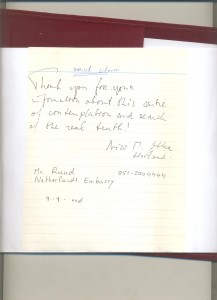 Thank you for your
information about this centre
of contemplation and search
of the real truth!
M.
Holland.
Mr. Ruud 051-2004444
Netherlands Embassy
9-9-